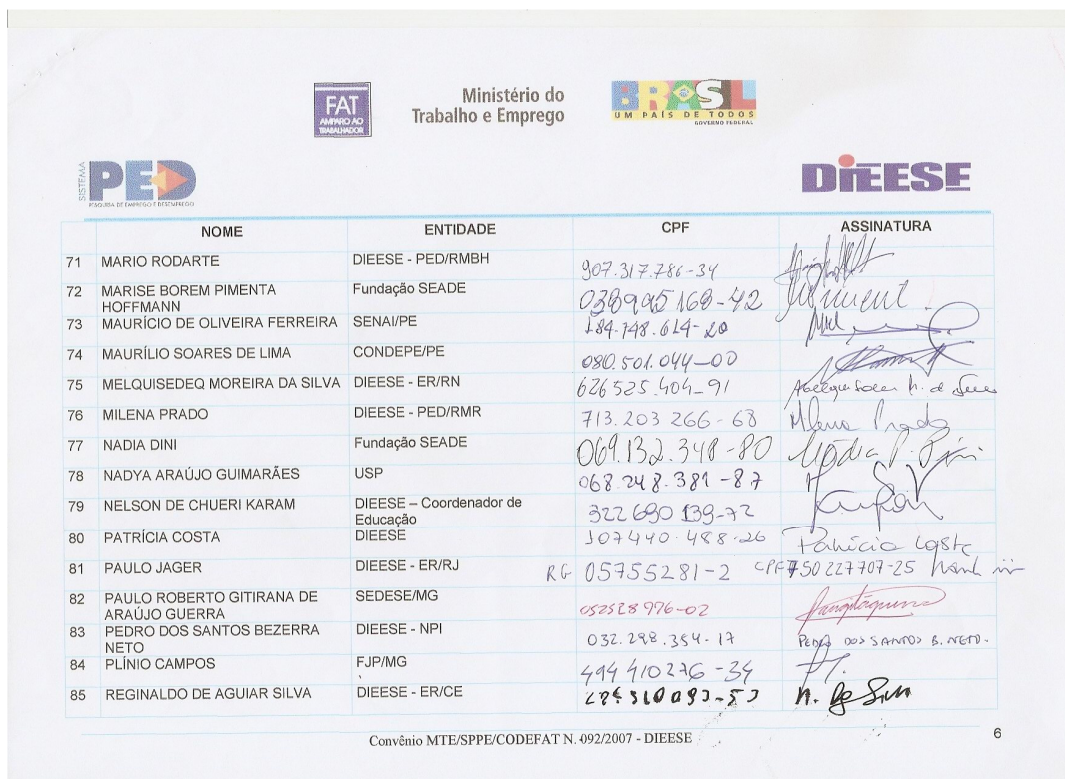 FAT
AMPARO AO
TRABALHADOR
Ministério do
Trabalho e Emprego
BRASIL
UM PAÍS DE TODOS
GOVERNO FEDERAL
SISTEMA
PED
PESQUISA DE EMPREGO E DESEMPREGO
DIEESE
NOME ENTIDADE CPF ASSINATURA
71 MARIO RODARTE DIEESE - PED/RMBH 907.317.786-34
72 MARISE BOREM PIMENTA HOFFMANN Fundação SEADE 038995168-42
73 MAURÍCIO DE OLIVEIRA FERREIRA SENAI/PE 184.748.614-20
74 MAURÍLIO SOARES DE LIMA CONDEPE/PE 080.501.044-00
75 MELQUISEDEQ MOREIRA DA SILVA DIEESE - ER/RN 626525.404-91
76 MILENA PRADO DIEESE - PED/RMR 713.203 266-68 Milena Prado
77 NADIA DINI Fundação SEADE 069.132.348-80
78 NADYA ARAÚJO GUIMARÃES USP 068.248.381-87
79 NELSON DE CHUERI KARAM DIEESE – Coordenador de Educação 322 690 139-72
80 PATRÍCIA COSTA DIEESE 107440.488-26 Patrícia Costa
81 PAULO JAGER DIEESE - ER/RJ RG 05755281-2 CPF 750227707-25
82 PAULO ROBERTO GITIRANA DE ARAÚJO GUERRA SEDESE/MG 052528976-02
83 PEDRO DOS SANTOS BEZERRA NETO DIEESE - NPI 032.298.354-17 PEDRO DOS SANTOS B. NETO.
84 PLÍNIO CAMPOS FJP/MG 494410276-34
85 REGINALDO DE AGUIAR SILVA DIEESE - ER/CE
Convênio MTE/SPPE/CODEFAT N. 092/2007 - DIEESE
6